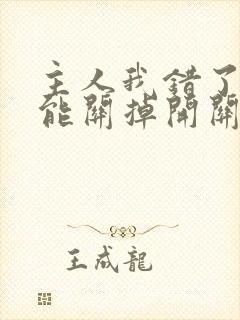 主人我错了
能關掉開關
王成龍